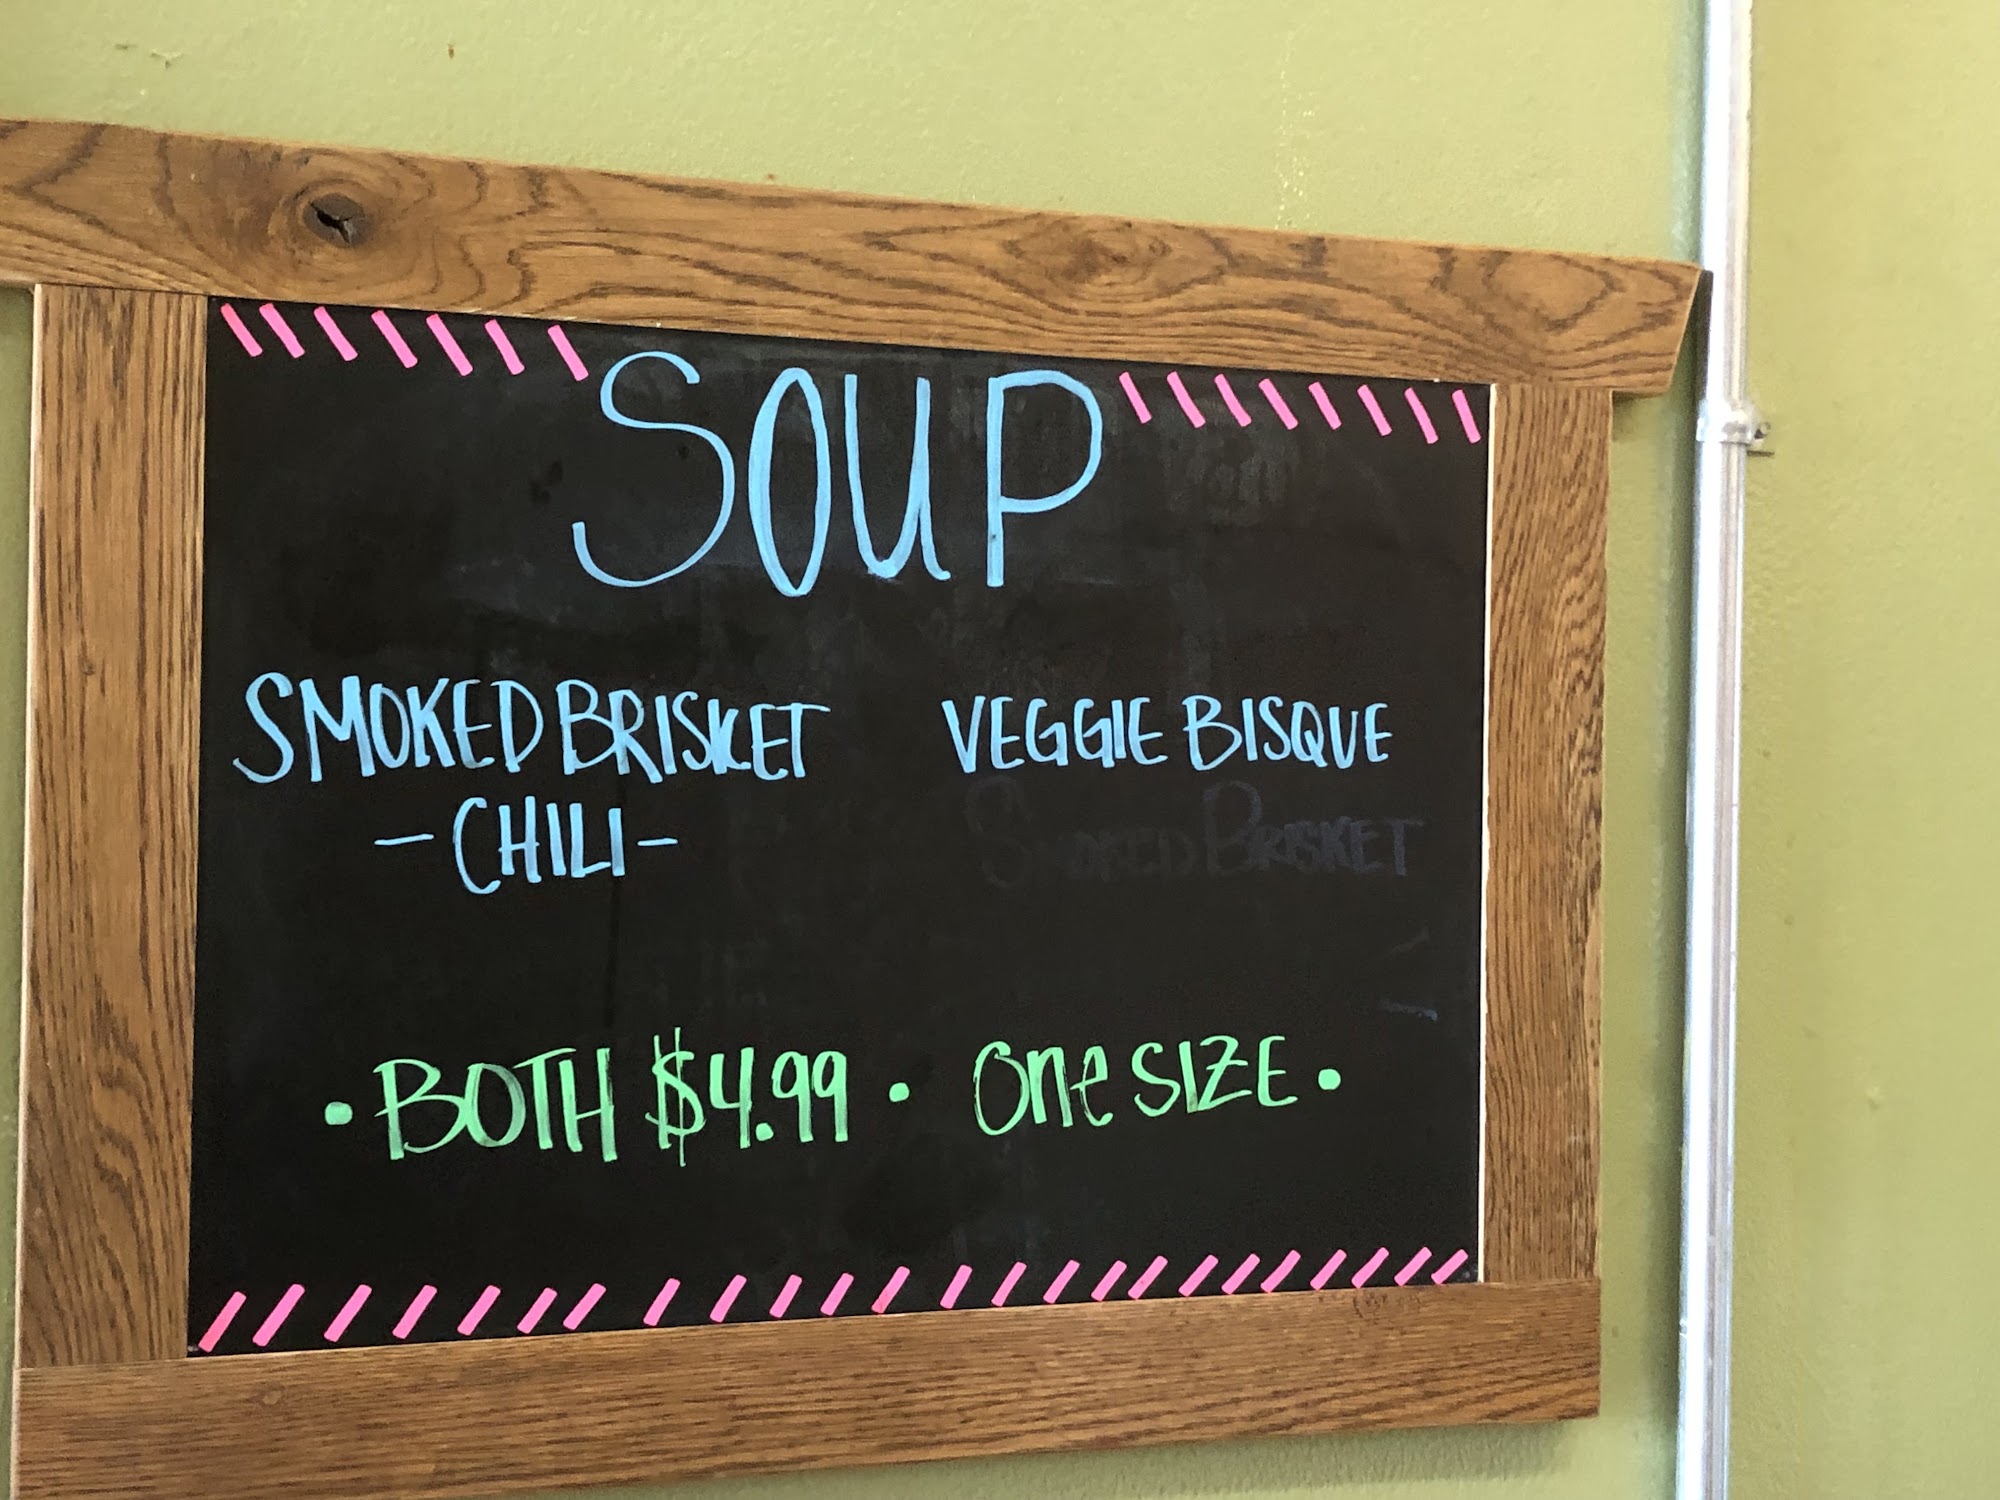 SOUP
SMOKED BRISKET
- CHILI -
VEGGIE BISQUE
SMOKED BRISKET
• BOTH $4.99 • One SIZE •